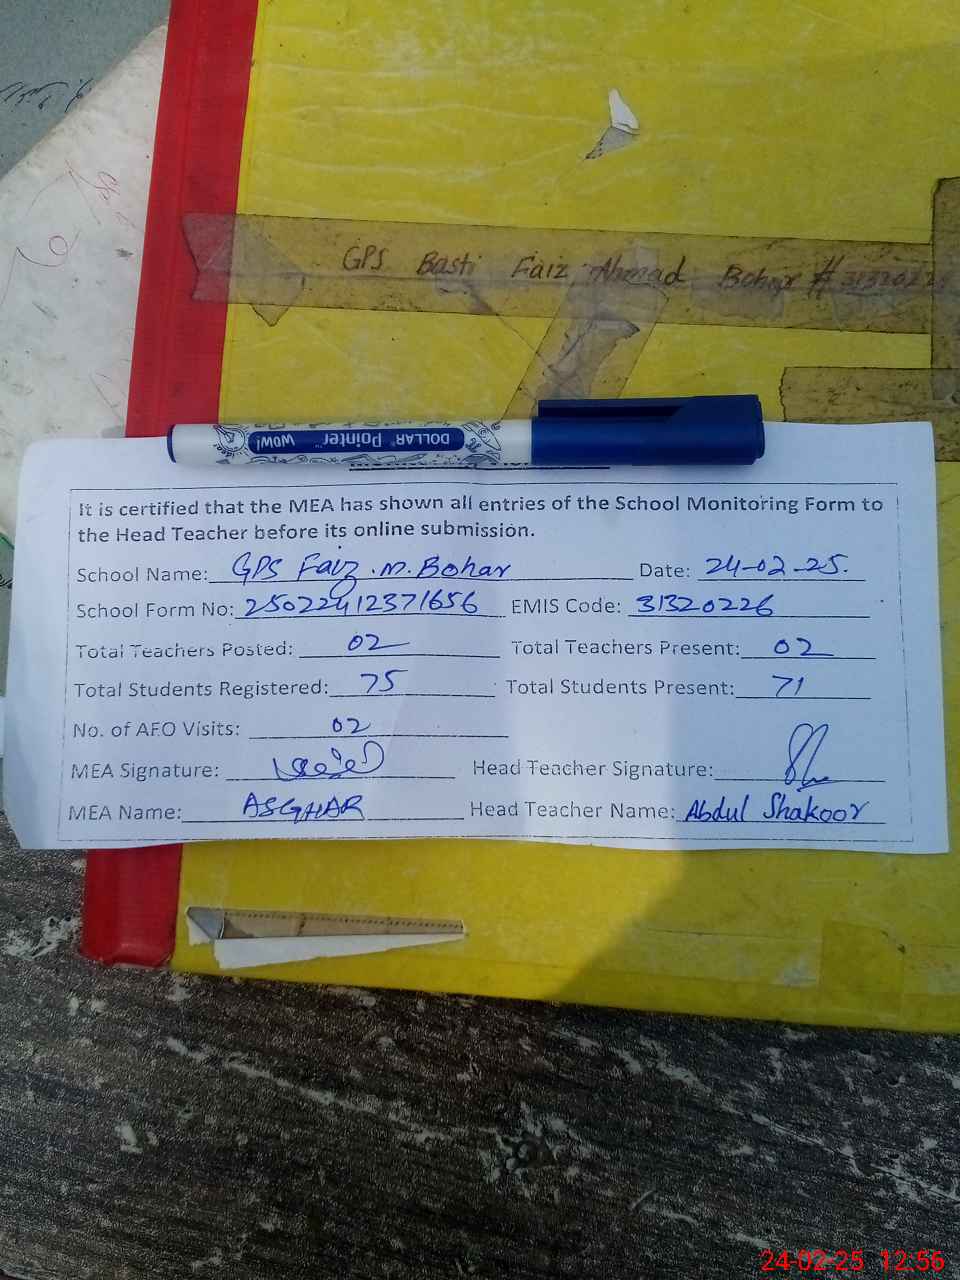 GPS Basti Faiz Ahmad Bohar # 3132022
DOLLAR Pointer WOW!
It is certified that the MEA has shown all entries of the School Monitoring Form to
the Head Teacher before its online submission.
School Name: GPS Faiz .M. Bohar Date: 24-02-25.
School Form No: 25022412371656 EMIS Code: 31320226
Total Teachers Posted: 02 Total Teachers Present: 02
Total Students Registered: 75 Total Students Present: 71
No. of AEO Visits: 02
MEA Signature: Head Teacher Signature:
MEA Name: ASGHAR Head Teacher Name: Abdul Shakoor
24-02-25 12:56